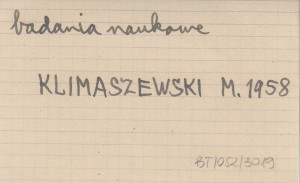 badania naukowe
KLIMASZEWSKI M. 1958
BT/052/3019